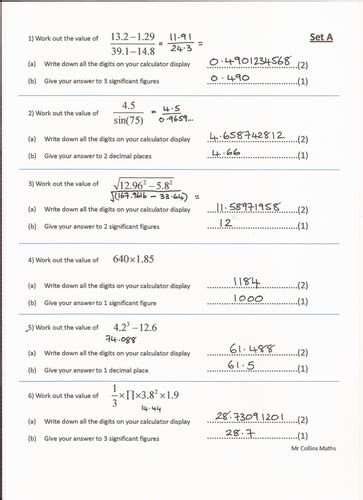 Set A
1) Work out the value of 13.2 – 1.29 / 39.1 – 14.8 = 11.91 / 24.3 =
(a) Write down all the digits on your calculator display 0.4901234568 (2)
(b) Give your answer to 3 significant figures 0.490 (1)
2) Work out the value of 4.5 / sin(75) = 4.5 / 0.9659...
(a) Write down all the digits on your calculator display 4.658742812 (2)
(b) Give your answer to 2 decimal places 4.66 (1)
3) Work out the value of √12.96² – 5.8²
√(167.9616 – 33.64) =
(a) Write down all the digits on your calculator display 11.58971958 (2)
(b) Give your answer to 2 significant figures 12 (1)
4) Work out the value of 640×1.85
(a) Write down all the digits on your calculator display 1184 (2)
(b) Give your answer to 1 significant figure 1000 (1)
5) Work out the value of 4.2³ – 12.6
74.088
(a) Write down all the digits on your calculator display 61.488 (2)
(b) Give your answer to 1 decimal place 61.5 (1)
6) Work out the value of 1/3 × ∏ × 3.8² × 1.9
14.44
(a) Write down all the digits on your calculator display 28.73091201 (2)
(b) Give your answer to 3 significant figures 28.7 (1)
Mr Collins Maths